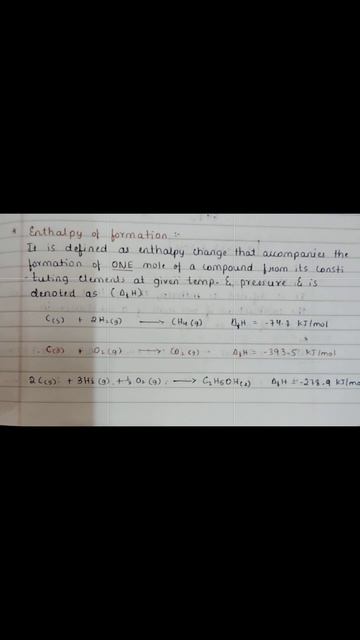 * Enthalpy of formation :-
It is defined as enthalpy change that accompanies the
formation of ONE mole of a compound from its consti
-tuting elements at given temp. & pressure & is
denoted as (ΔfH)
C(s) + 2H2(g) ⟶ CH4(g) ΔfH = -74.8 KJ/mol
C(s) + O2(g) ⟶ CO2(g) ΔfH = -393.5 KJ/mol
2C(s) + 3H2(g) + ½O2(g) ⟶ C2H5OH(l) ΔfH = -278.9 KJ/mo